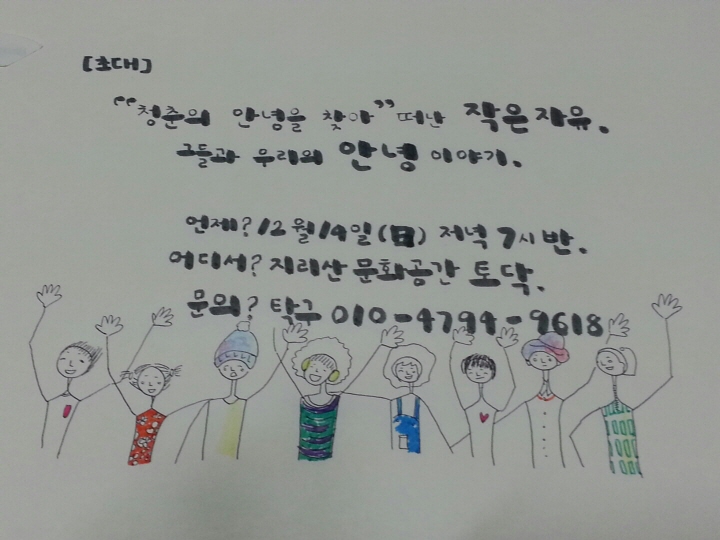 [초대]
“청춘의 안녕을 찾아” 떠난 작은자유.
그들과 우리의 안녕 이야기.
언제? 12월 14일 (日) 저녁 7시 반.
어디서? 지리산 문화공간 토닥.
문의? 탁구 010-4794-9618